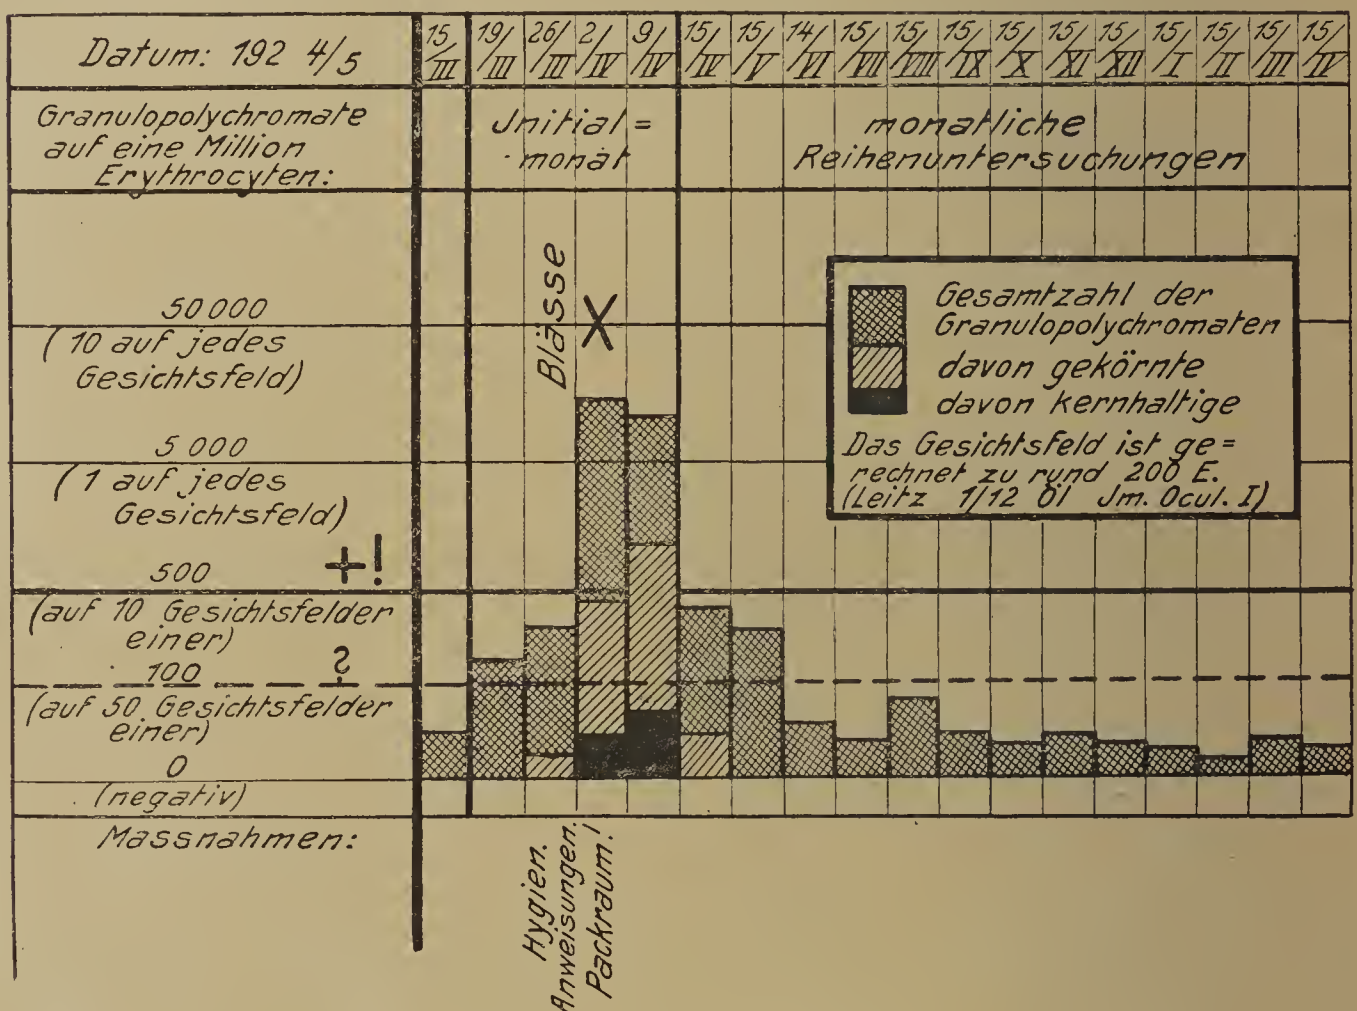 Datum: 192 4/5
15/III 19/III 26/III 2/IV 9/IV 15/IV 15/V 14/VI 15/VII 15/VIII 15/IX 15/X 15/XI 15/XII 15/I 15/II 15/III 15/IV
Granulopolychromate
auf eine Million
Erythrocyten:
Jnitial=
monat
monatliche
Reihenuntersuchungen
50 000
(10 auf jedes
Gesichtsfeld)
5 000
(1 auf jedes
Gesichtsfeld)
500 +!
(auf 10 Gesichtsfelder
einer)
100 ?
(auf 50 Gesichtsfelder
einer)
0
(negativ)
Massnahmen:
Blässe
X
Gesamtzahl der
Granulopolychromaten
davon gekörnte
davon kernhaltige
Das Gesichtsfeld ist ge=
rechnet zu rund 200 E.
(Leitz 1/12 Öl Jm. Ocul. I)
Hygien.
Anweisungen.
Packraum!